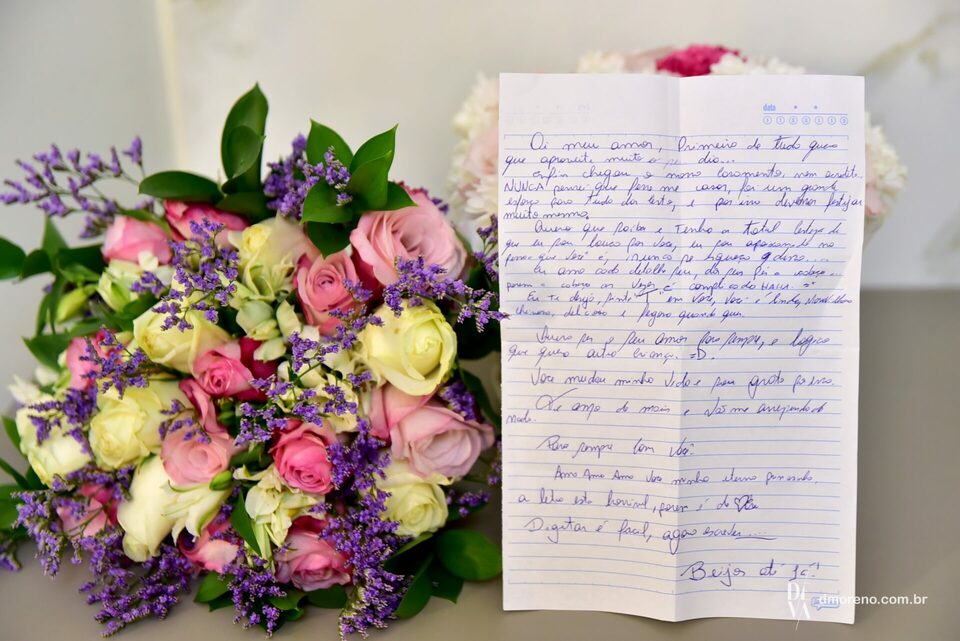 data
Oi meu amor, Primeiro de tudo quero
que aproveite muito o seu dia...
Enfim chegou o nosso casamento, nem acredito.
NUNCA pensei que fosse me casar, foi um grande
esforço para tudo dar certo, e por isso devemos festejar
muito mesmo.
Quero que saiba e Tenha a total certeza de
que eu sou louco por você, eu sou apaixonado na
pessoa que você é, nunca se esqueça disso...
Eu amo cada detalhe seu, do seu pé a cabeça...
porém a cabeça as Vezes é complicado HAUU. =)
Eu te desejo, em você, você é linda,
cheirosa, deliciosa e quando quer.
Quero ser o seu amor para sempre, e lógico
que quero outra criança. =D.
Você mudou minha vida e sou grato por isso.
Te amo de mais e Não me arrependo de
nada.
Para sempre com você.
Amo Amo Amo você minha eterna namorada.
a letra esta horrivel, porem é do
Digitar é facil, agora escrever......
Beijos até Já!!
DIVA
dmoreno.com.br